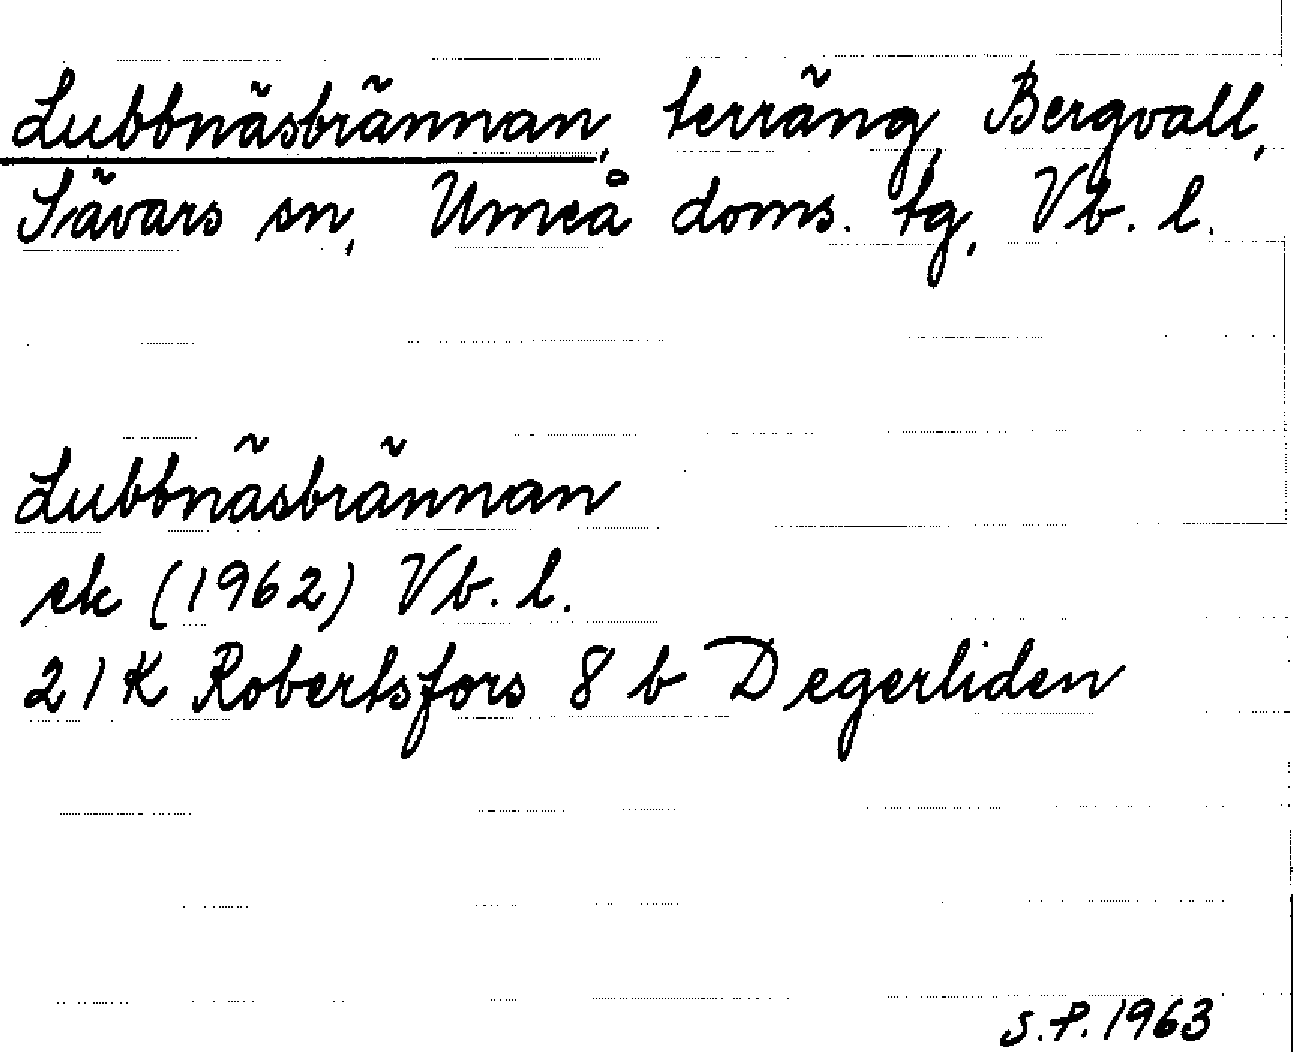 Lubbnäsbrännan, terräng, Bergvall,
Sävars sn, Umeå doms. tg, Vb. l.
Lubbnäsbrännan
ek (1962) Vb. l.
21 K Robertsfors 8 b Degerliden
S.P. 1963